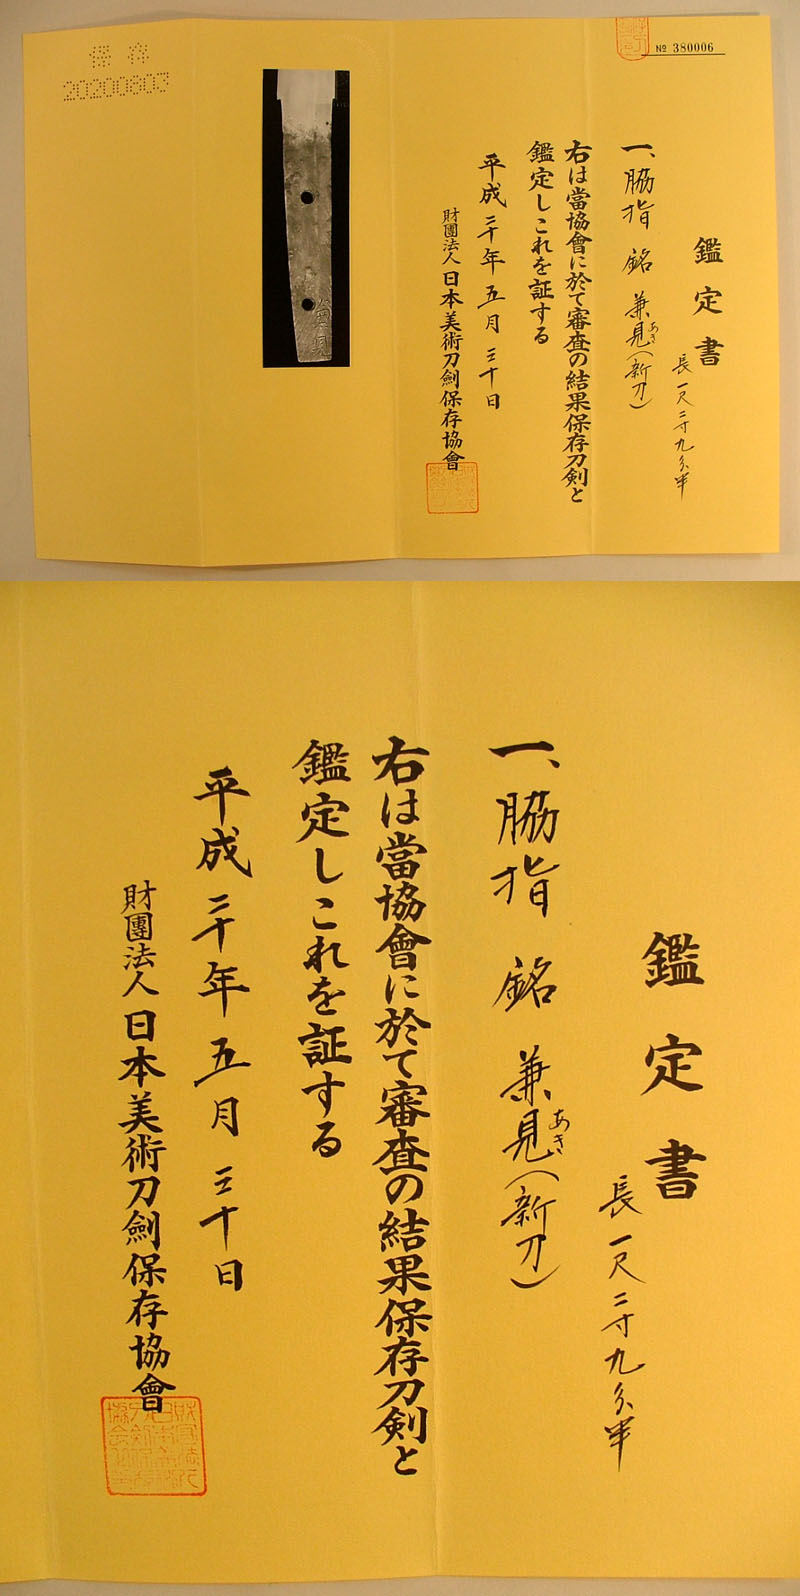 № 380006
鑑定書
長一尺二寸九分半
一、脇指 銘 兼見(新刀)
あき
右は當協會に於て審査の結果保存刀剣と
鑑定しこれを証する
平成二十年五月三十日
財團法人日本美術刀劍保存協會
保存
20200803
鑑定書
長一尺二寸九分半
一、脇指 銘 兼見(新刀)
あき
右は當協會に於て審査の結果保存刀剣と
鑑定しこれを証する
平成二十年五月三十日
財團法人日本美術刀劍保存協會